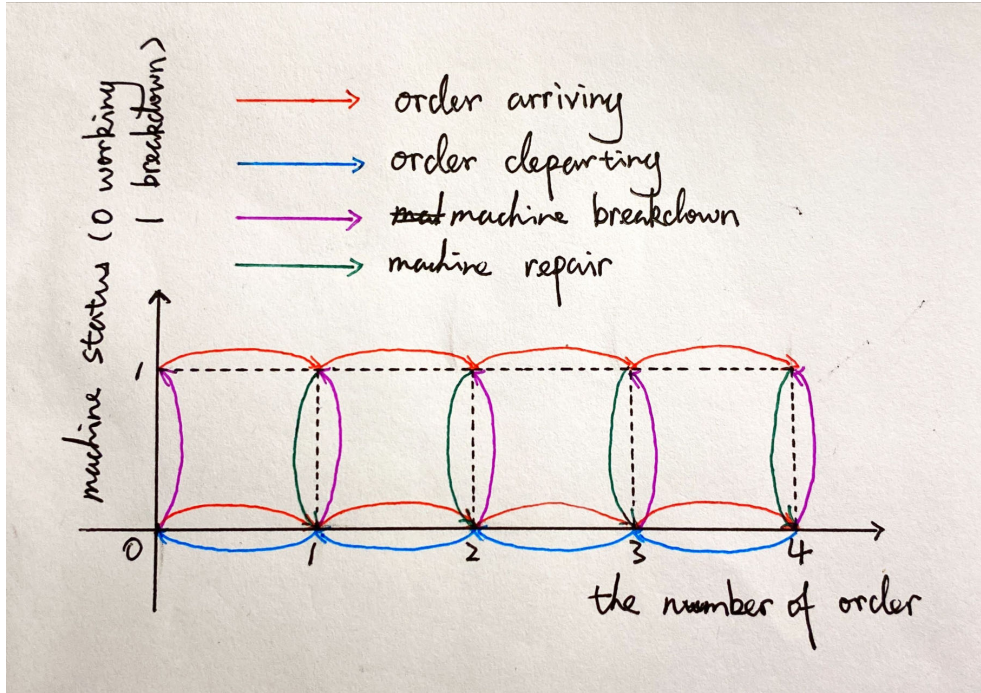 machine status (0 working
1 breakdown)
order arriving
order departing
machine breakdown
machine repair
1
0
1
2
3
4
the number of order